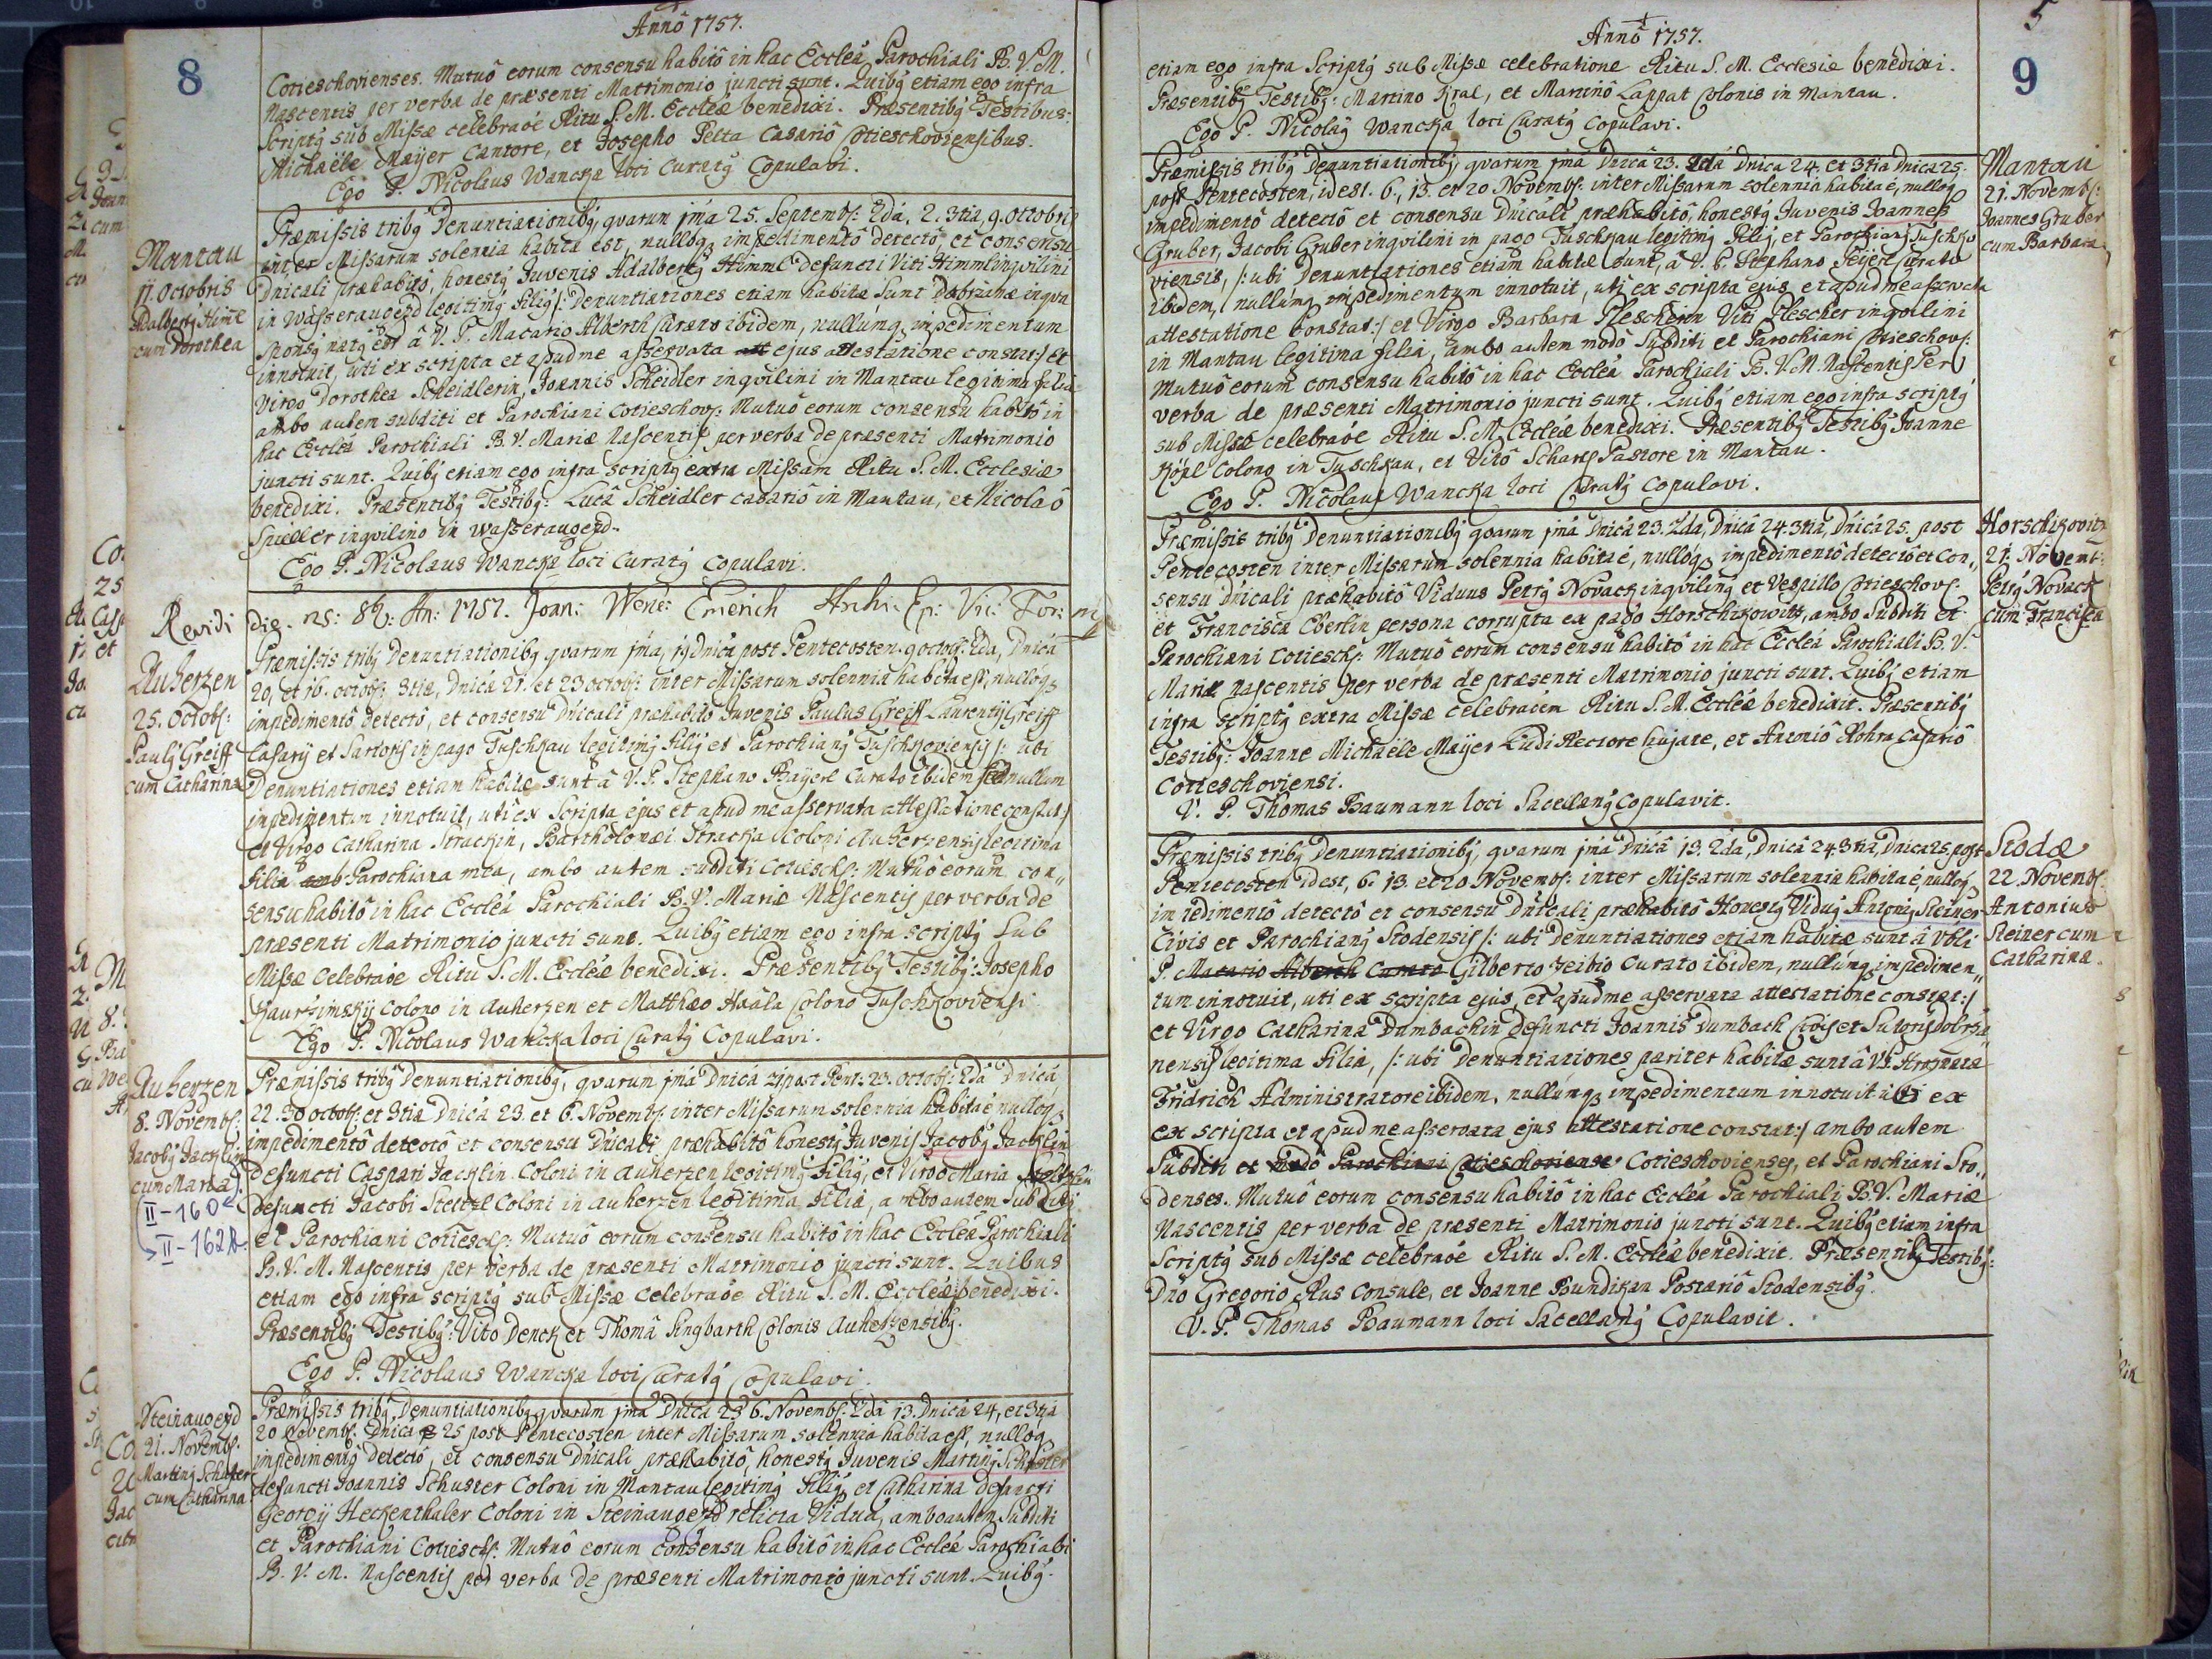 8
Annô 1757.
Cotieschovienses. Mutuô eorum consensu habitô in hac Eccleâ Parochiali B. V. M.
Nascentis per verba de præsenti Matrimonio juncti sunt. Quibꝰ etiam ego infra
Scriptꝰ sub Missæ celebraõe Ritu S. M. Eccleæ benedixi. Præsentibꝰ Testibus:
Michaële Maÿer Cantore, et Josepho Petta Casariô Cotieschoviensibus.
Ego P. Nicolaus Wancka loci Curatꝰ Copulavi.
Mantau
11. Octobris
Adalbertꝰ Himml
cum Dorothea
Præmissis tribꝰ Denuntiationibꝰ, qvarum jma 25. Septembr: 2da, 2. 3tia, 9. Octobris
inter Missarum solennia habita est, nullóqꝫ impedimentô detectô, et consensu
Dnicali præhabitô, honestꝰ Juvenis Adalbertꝰ Himml defuncti Viti Himml inqvilini
in Wasseraugezd legitimꝰ filiꝰ /: Denuntiationes etiam habitæ sunt Dobrzanæ in qva
Sponsꝰ natꝰ est â V. P. Macario Alberth Curato ibidem, nullúmqꝫ impedimentum
innotuit, uti ex scripta et apud me asservata ejus attestatione constat:/ et
Virgo Dorothea Scheidlerin, Joannis Scheidler inqvilini in Mantau legitima filia
ambo autem subditi et Parochiani Cotieschovs: Mutuô eorum consensu habitô in
hac Eccleâ Parochiali B. V. Mariæ Nascentis per verba de præsenti Matrimonio
juncti sunt. Quibꝰ etiam ego infra scriptꝰ extra Missam Ritu S. M. Ecclesiæ
benedixi. Præsentibꝰ Testibꝰ: Lucâ Scheidler casariô in Mantau, et Nicolaô
Spieller inqvilino in Wasseraugezd.
Ego P. Nicolaus Wancka loci Curatꝰ copulavi.
Revidi Die. 25: 8b: An: 1757. Joan: Wenc: Emerich Archi: Ep: Vic: For: mp
Auherzen
25. Octobr:
Paulꝰ Greiff
cum Catharina
Præmissis tribꝰ Denuntiationibꝰ qvarum jma, 19 Dnicâ post Pentecosten. 9 octobr: 2da, Dnicâ
20, et 16. octobr: 3tia, Dnicâ 21. et 23 octobr: inter Missarum solennia habita est, nullóqꝫ
impedimentô detectô, et consensu Dnicali præhabitô Juvenis Paulus Greiff Laurentÿ Greiff
Casarÿ et Sartoris in pago Tuschkau legitimꝰ filiꝰ et Parochianꝰ Tuschkoviensis /: ubi
Denuntiationes etiam habitæ sunt â V. P. Stephano Baÿerl Curato ibidem sed nullum
impedimentum innotuit, uti ex scripta ejus et apud me asservata attestatione constat:/
et Virgo Catharina Strackin, Bartholomæi Stracka Coloni Auherzensis legitima
filia Parochiana mea, ambo autem subditi Cotieschs: Mutuô eorum con„
sensu habitô in hac Eccleâ Parochiali B. V. Mariæ Nascentis per verba de
præsenti Matrimonio juncti sunt. Quibꝰ etiam ego infra scriptꝰ Sub
Missæ celebraõe Ritu S. M. Eccleæ benedixi. Præsentibꝰ Testibꝰ: Josepho
Kaurzimskÿ Colono in Auherzen et Matthæo Haala Colono Tuschkoviensi
Ego P. Nicolaus Wancka loci Curatꝰ Copulavi.
Auherzen
8. Novembr:
Jacobꝰ Jacklin
cum Maria
II-160
II-162
Præmissis tribꝰ Denuntiationibꝰ, qvarum jma Dnicâ 21 post Pent: 23. octobr: 2da Dnicâ
22. 30 octobr: et 3tia Dnicâ 23 et 6. Novembr: inter Missarum solennia habita ẽ nullóqꝫ
impedimentô detectô et consensu Dnicali præhabitô honestꝰ Juvenis Jacobꝰ Jacklin
defuncti Caspari Jacklin Coloni in Auherzen legitimꝰ filiꝰ, et Virgo Maria Steltzlin
defuncti Jacobi Steltzl Coloni in Auherzen legitima filia, ambo autem subditi
et Parochiani Cotieschs: Mutuô eorum consensu habitô in hac Eccleâ Parochiali
B. V. M. Nascentis per verba de præsenti Matrimonio juncti sunt. Quibus
etiam ego infra scriptꝰ sub Missæ celebraõe Ritu S. M. Eccleæ benedixi.
Præsentibꝰ Testibꝰ: Vito Denck et Thomâ Singbarth Colonis Auherzensibꝰ.
Ego P. Nicolaus Wancka loci Curatꝰ Copulavi.
Steinaugezd
21. Novembr.
Martinꝰ Schuster
cum Catharina
Præmissis tribꝰ Denuntiationibꝰ qvarum jma Dnicâ 23 6. Novembr: 2da 13. Dnicâ 24, et 3tia
20 Novembr: Dnicâ 25 post Pentecosten inter Missarum solennia habita est, nullóqꝫ
impedimentô detectô, et consensu Dnicali præhabitô, honestꝰ Juvenis Martinꝰ Schuster
defuncti Joannis Schuster Coloni in Mantau legitimꝰ filiꝰ, et Catharina defuncti
Georgÿ Heckenthaler Coloni in Steinaugezd relicta Vidua, ambo autem Subditi
et Parochiani Cotieschs: Mutuô eorum consensu habitô in hac Eccleâ Parochiali
B. V. M. Nascentis per verba de præsenti Matrimonio juncti sunt. Quibꝰ
5
9
Annô 1757.
etiam ego infra Scriptꝰ sub Missæ celebratione Ritu S. M. Ecclesiæ benedixi.
Præsentibꝰ Testibꝰ: Martino Kral, et Martinô Lappat Colonis in Mantau.
Ego P. Nicolaꝰ Wancka loci Curatꝰ Copulavi.
Mantau
21. Novembr:
Joannes Gruber
cum Barbara
Præmissis tribꝰ Denuntiationibꝰ, qvarum jma Dnicâ 23. 2da Dnicâ 24. et 3tia Dnicâ 25.
post Pentecosten, id est. 6., 13. et 20 Novembr: inter Missarum solennia habita ẽ, nullóqꝫ
impedimentô detectô et consensu Dnicali præhabitô, honestꝰ Juvenis Joannes
Gruber, Jacobi Gruber inqvilini in pago Tuschkau legitimꝰ filiꝰ, et Parochianꝰ Tuschko
viensis, /: ubi Denuntiationes etiam habitæ sunt, â V. P. Stephano Peÿerl Curato
ibidem, nullúmqꝫ impedimentum innotuit, uti ex scripta ejus et apud me asservata
attestatione constat:/ et Virgo Barbara Plescherin Viti Plescher inqvilini
in Mantau legitima filia, ambo autem modô Subditi et Parochiani Cotieschovs:
Mutuô eorum consensu habitô in hac Eccleâ Parochiali B. V. M. Nascentis Per
verba de præsenti Matrimonio juncti sunt. Quibꝰ etiam ego infra scriptꝰ
sub Missæ celebraõe Ritu S. M. Eccleæ benedixi. Præsentibꝰ Testibꝰ Joanne
Köpl Colono in Tuschkau, et Vitô Scharf Pastore in Mantau.
Ego P. Nicolaus Wancka loci Curatꝰ Copulavi.
Horschikovitz
21. Novemb:
Petrꝰ Novack
cum Francisca
Præmissis tribꝰ Denuntiationibꝰ qvarum jma Dnicâ 23. 2da, Dnicâ 24. 3tia, Dnicâ 25. post
Pentecosten inter Missarum solennia habita ẽ, nullóqꝫ impedimentô detectô et Con„
sensu Dnicali præhabitô Viduus Petrꝰ Novack inqvilinꝰ et Vespillo Cotieschovs:
et Francisca Eberlin persona corrupta ex pago Horschikowitz, ambo Subditi et
Parochiani Cotieschs: Mutuô eorum consensu habitô in hac Eccleâ Parochiali B. V.
Mariæ Nascentis per verba de præsenti Matrimonio juncti sunt. Quibꝰ etiam
infra scriptꝰ extra Missæ celebraõem Ritu S. M. Eccleæ benedixit. Præsentibꝰ
Testibꝰ: Joanne Michaële Maÿer Ludi Rectore hujate, et Antoniô Rohra Casariô
Cotieschoviensi.
V. P. Thomas Baumann loci Sacellanꝰ Copulavit.
Stodæ
22. Novembr.
Antonius
Steiner cum
Catharina.
Præmissis tribꝰ Denuntiationibꝰ, qvarum jma Dnicâ 13. 2da, Dnicâ 24. 3tia, Dnica 25. post
Pentecosten id est, 6. 13. et 20 Novembr: inter Missarum solennia habita ẽ, nullóqꝫ
impedimentô detectô et consensu Dnicali præhabitô Honestꝰ Viduꝰ Antonꝰ Steiner
Civis et Parochianꝰ Stodensis /: ubi Denuntiationes etiam habitæ sunt â Vbli
P. Macario Alberth Curato Gilberto Zeibio Curato ibidem, nullúmqꝫ impedimen„
tum innotuit, uti ex scripta ejus, et apud me asservata attestatione constat:/
et Virgo Catharina Dumbachin defuncti Joannis Dumbach Civis et Sutoris Dobrza„
nensis legitima filia, /: ubi Denuntiationes pariter habitæ sunt â V. P. Hroznata
Fridrich Administratore ibidem, nullúmqꝫ impedimentum innotuit uti ex
ex scripta et apud me asservata ejus attestatione constat:/ ambo autem
Subditi et modô Parochiani Cotieschoviense Cotieschovienses, et Parochiani Sto„
denses. Mutuô eorum consensu habitô in hac Eccleâ Parochiali B. V. Mariæ
Nascentis per verba de præsenti Matrimonio juncti sunt. Quibꝰ etiam infra
Scriptꝰ sub Missæ celebraõe Ritu S. M. Eccleæ benedixit. Præsentibꝰ Testibꝰ:
Dno Gregorio Rus Consule, et Joanne Bundikan Postariô Stodensibꝰ.
V. P. Thomas Baumann loci Sacellanꝰ Copulavit.